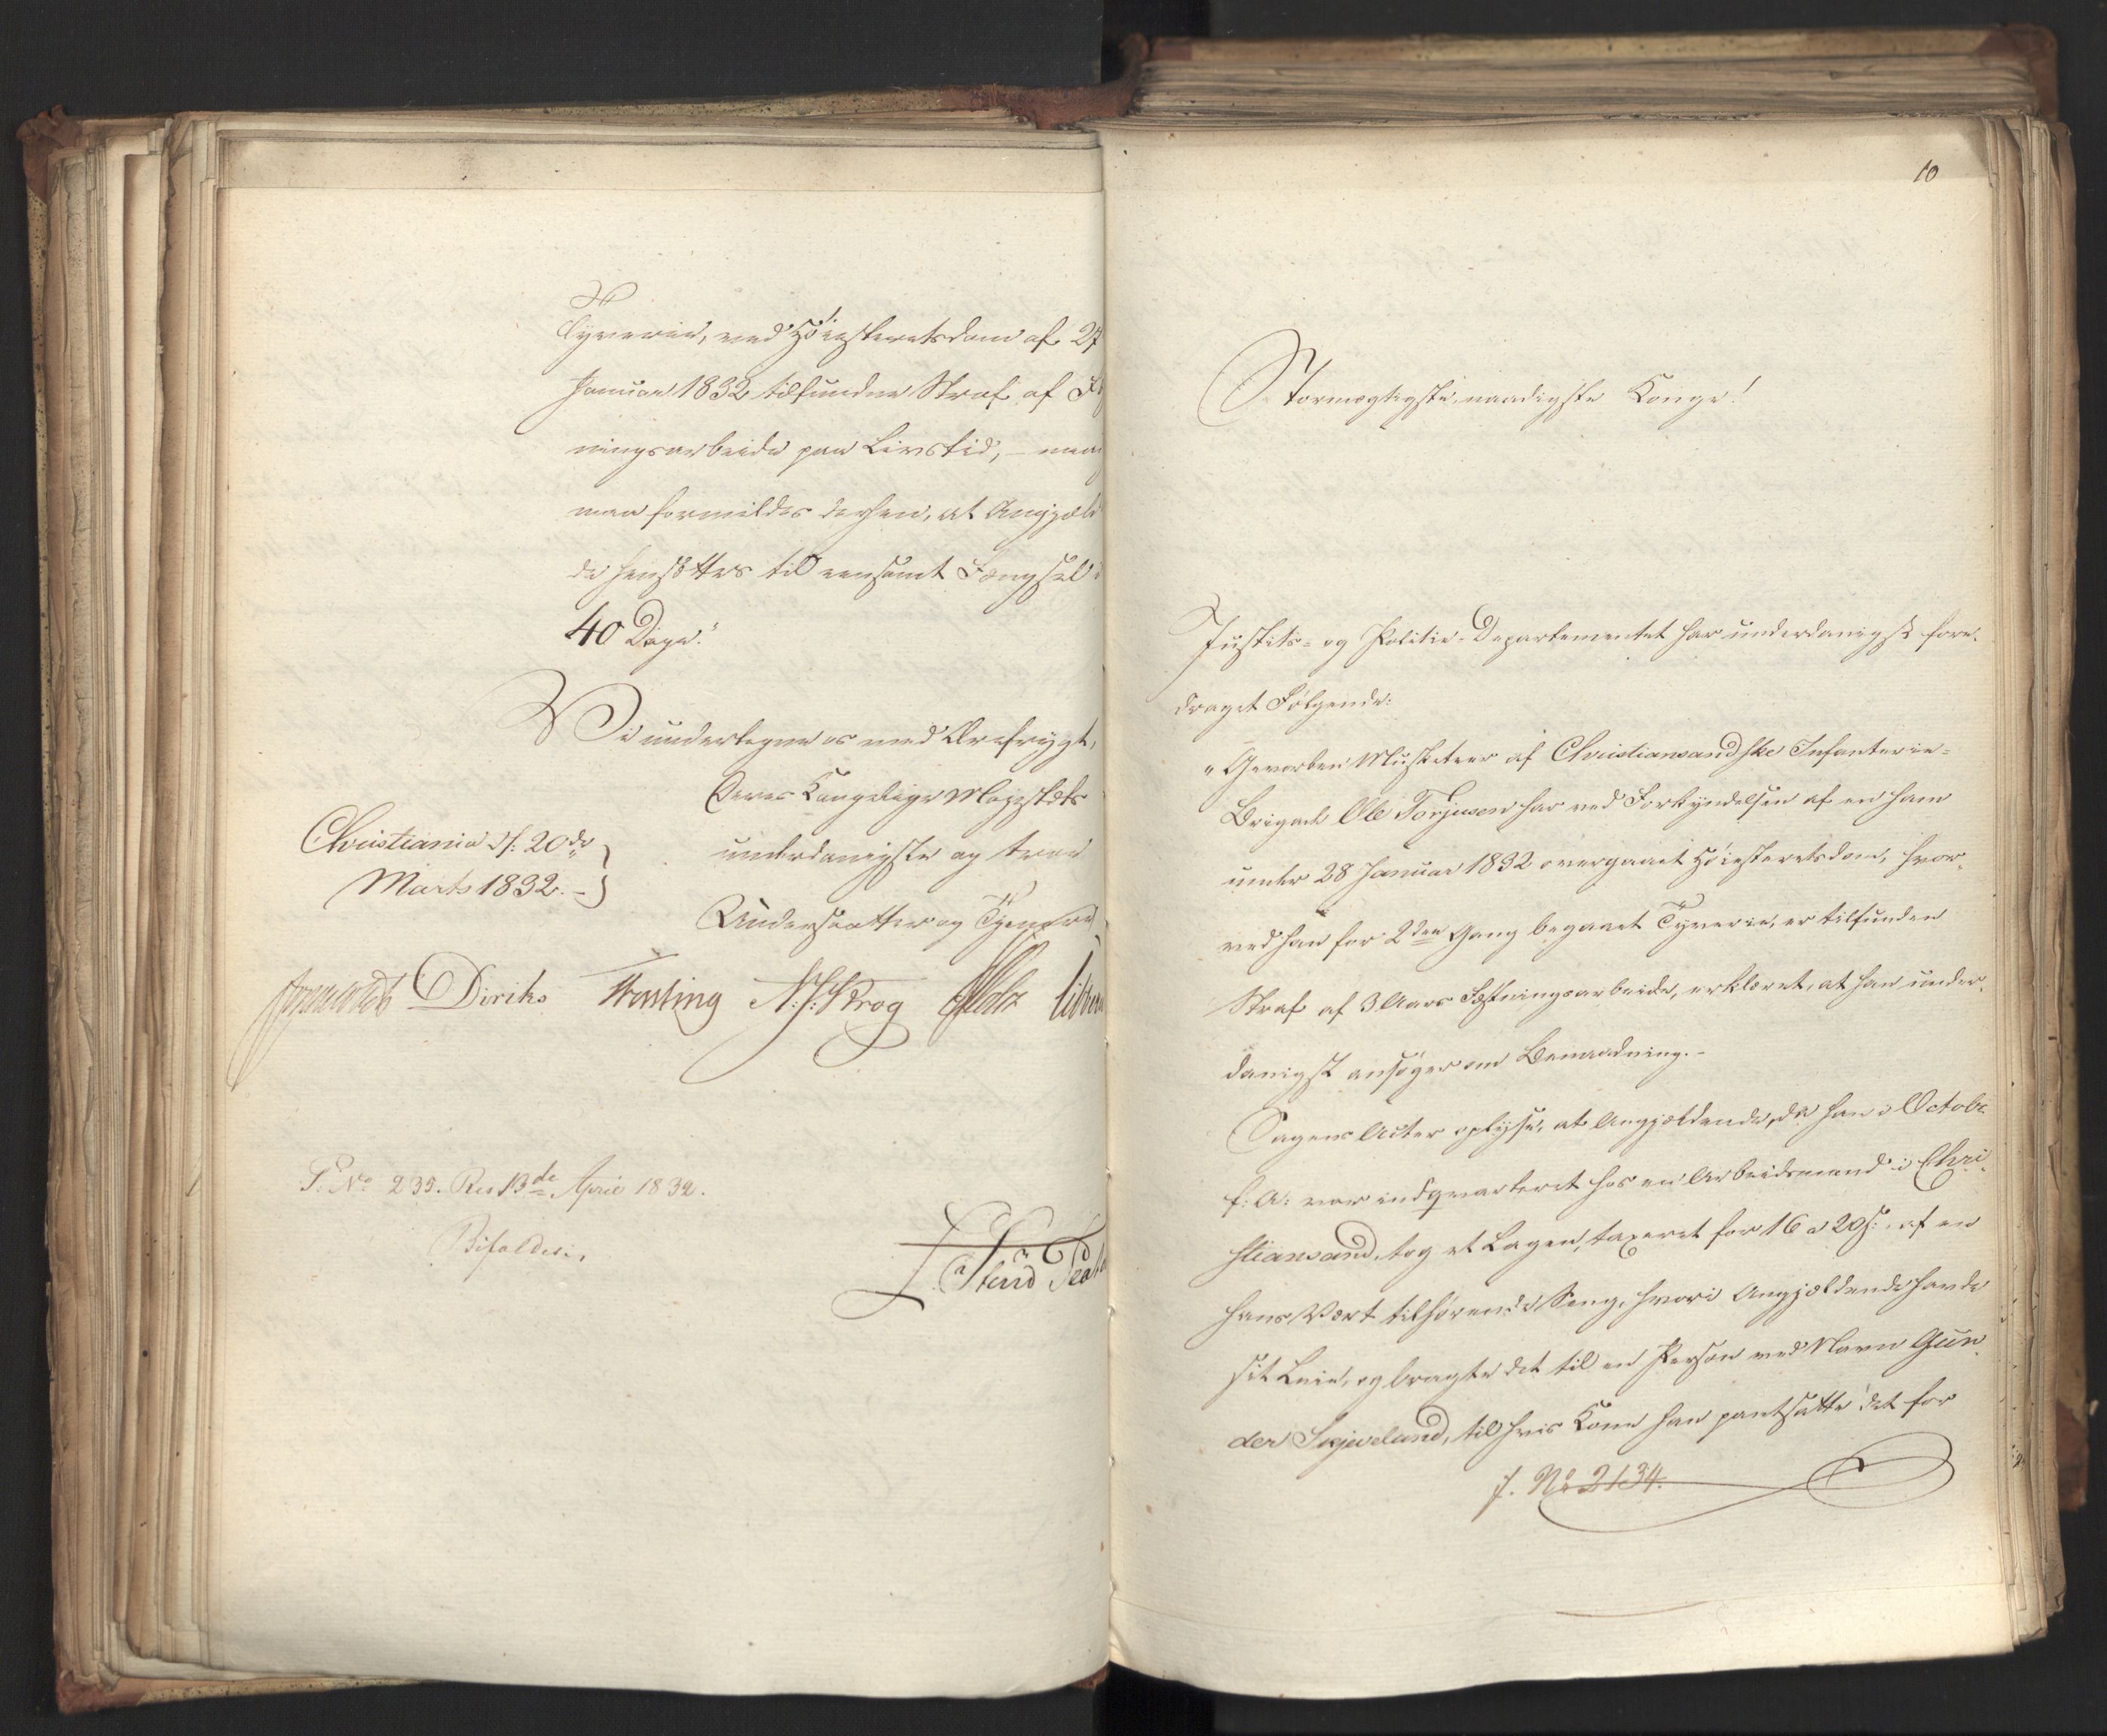 Tyverie, ved Høiesteretsdom af 27
Januar 1832 tilfundne Straf af
ningsarbeide paa Livstid, –
maa formildes derhen, at Angjæld
de hensættes til eensomt Fængsel i
40 Dage."
Vi undertegne os med Ærefrygt,
Deres Kongelige Majestæts
underdanigste og troe
Undersaatter og Tjenere
Christiania d: 20de
Marts 1832. –
Diriks N: J: Krog
P: No 235. Res 13de April 1832.
Bifaldes.
10
Stormægtigste, naadigste Konge!
Justits- og Politie-Departementet har underdanigst fore-
draget Følgende:
"Gevorben Musketeer af Christiansandske Infanterie-
Brigade Ole Torjusen har ved Forkyndelsen af en ham
under 28 Januar 1832 overgaaet Høiesteretsdom, hvor-
ved han for 2den Gang begaaet Tyverie, er tilfunden
Straf af 3 Aars Fæstningsarbeide, erklæret, at han under-
danigst ansøger om Benaadning. –
Sagens Acter oplyse, at Angjældende, da han i Octobr
f: A: var indqvarteret hos en Arbeidsmand i Chri-
stiansand, tog et Lagen, taxeret for 16 a 20 s: af en
hans Vært tilhørende Seng, hvori Angjældende havde
sit Leie, og bragte det til en Person ved Navn Gun-
der, til hvis Kone han pantsatte det for
J. No 2134.